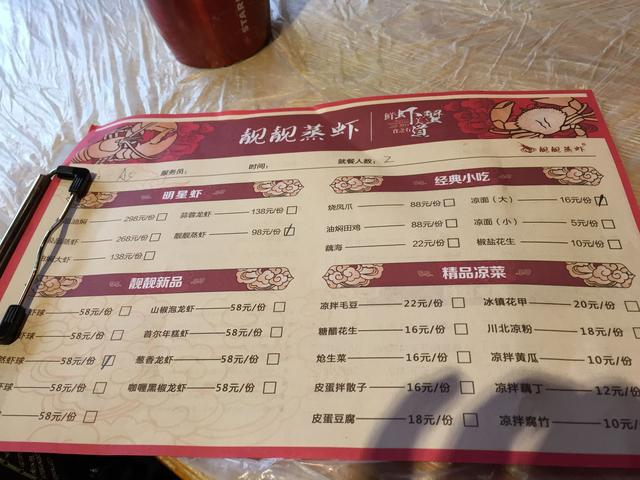 STAR
靓靓蒸虾
鲜虾蟹
食之有道
靓靓蒸虾
A5 服务员： 时间： 就餐人数：2
明星虾
油焖 298元/份 蒜蓉龙虾 138元/份
蒸虾 268元/份 靓靓蒸虾 98元/份
大虾 138元/份
经典小吃
烧凤爪 88元/份 凉面（大） 16元/份
油焖田鸡 88元/份 凉面（小） 5元/份
藕海 22元/份 椒盐花生 10元/份
靓靓新品
虾球 58元/份 山椒泡龙虾 58元/份
虾球 58元/份 首尔年糕虾 58元/份
虾球 58元/份 葱香龙虾 58元/份
虾球 58元/份 咖喱黑椒龙虾 58元/份
58元/份
精品凉菜
凉拌毛豆 22元/份 冰镇花甲 20元/份
糖醋花生 16元/份 川北凉粉 18元/份
炝生菜 16元/份 凉拌黄瓜 10元/份
皮蛋拌散子 16元/份 凉拌藕丁 12元/份
皮蛋豆腐 18元/份 凉拌腐竹 10元/